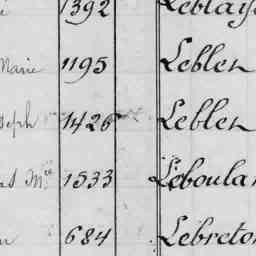 1392 Leblay
Marie 1195 Leblen
seph 1426 Leblen
1533 Leboula
684 Lebreto